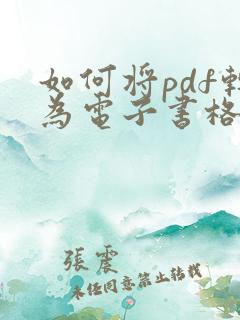 如何將pdf轉
為電子書格
張震
未经同意禁止转载